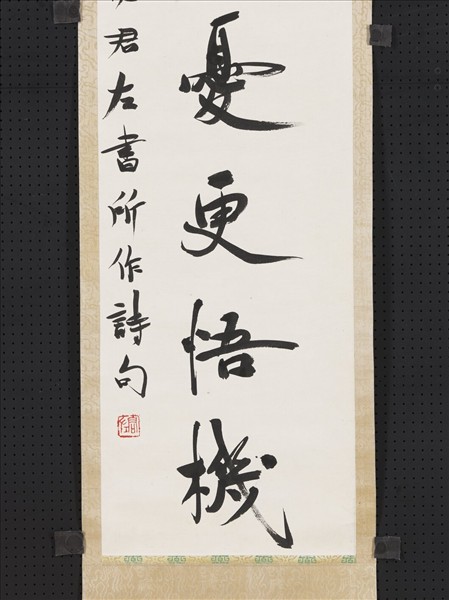 憂更悟機
君左書所作詩句